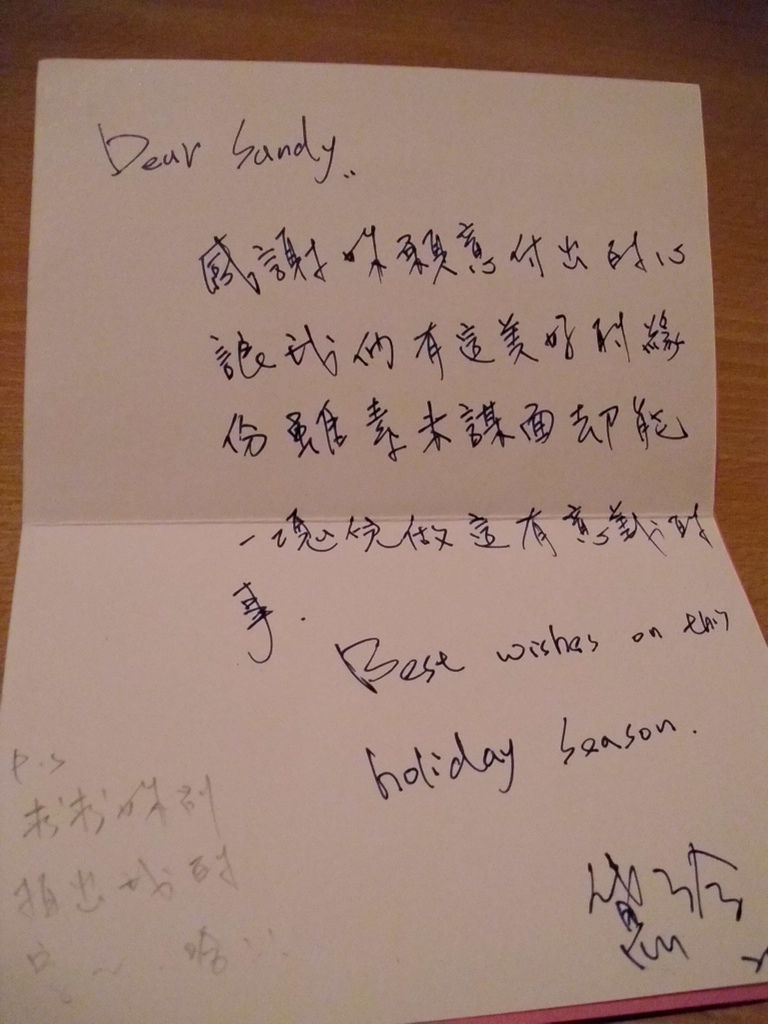 Dear Sandy..
感謝妳願意付出的心
讓我們有這美好的緣
份雖素未謀面却能
一塊完做這有意義的
事.
Best wishes on this
holiday season.
P.S
求求妳別
損出我的
~. 哈..